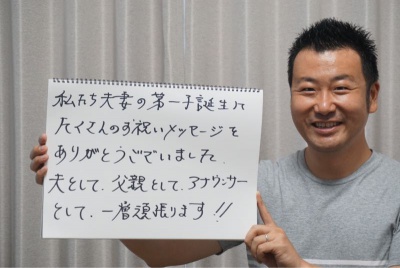 私たち夫妻の第一子誕生に
たくさんのお祝いメッセージを
ありがとうございました.
夫として、父親として、アナウンサー
として、一層頑張ります!!